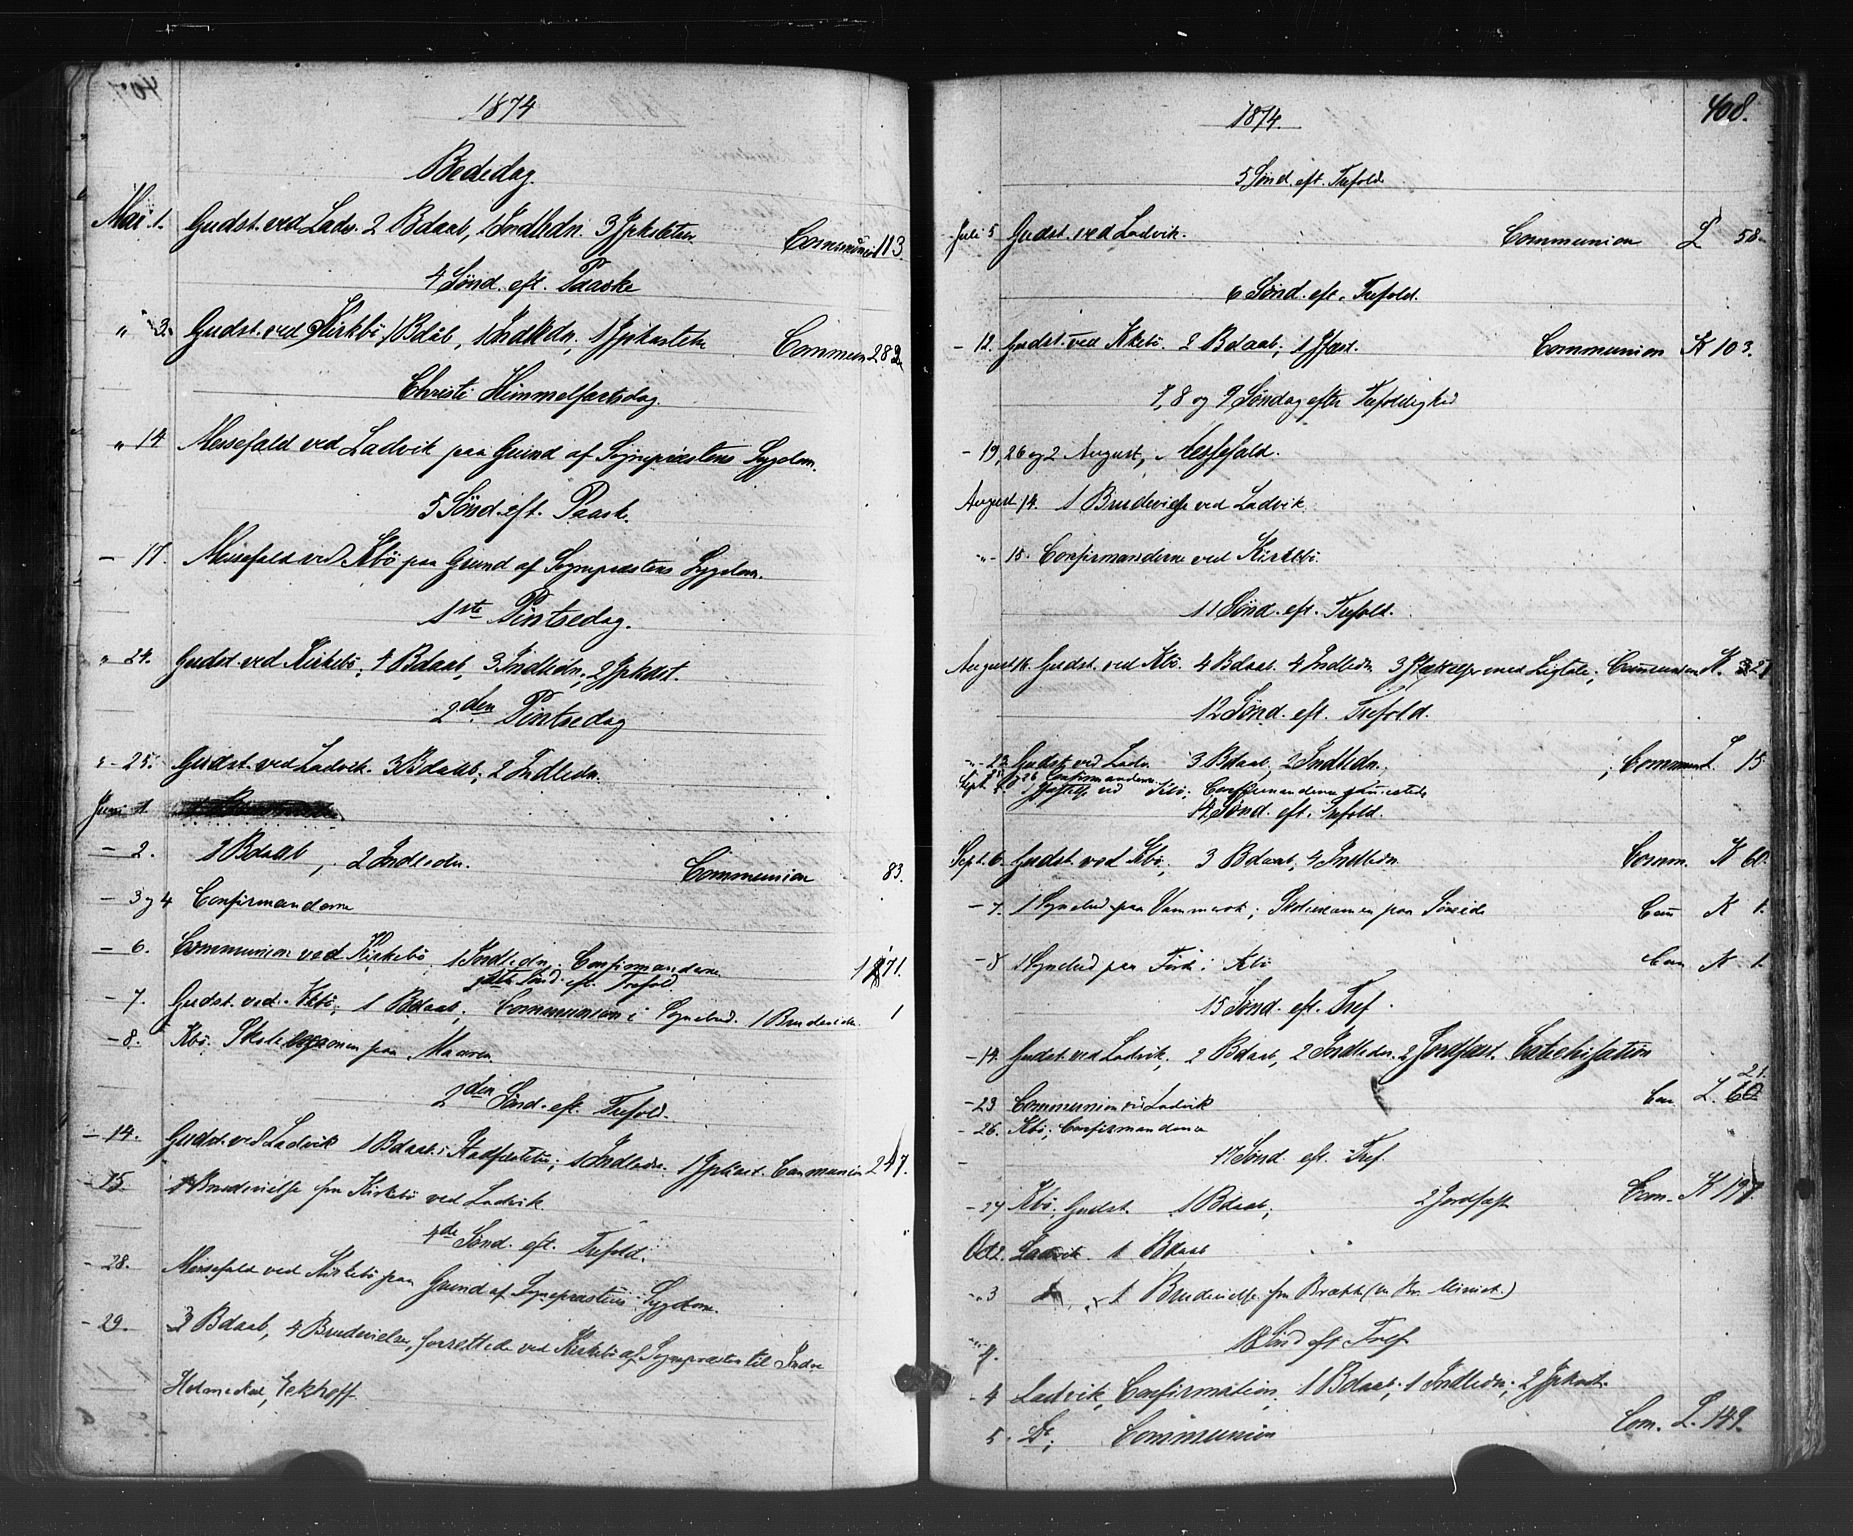 1874
Bededag.
Mai 1. Gudst. ved Ladv. 2 Bdaab, 1 Indledn. 3 Jpkastelser Communion 113.
4 Sønd. eft. Paaske
" 3. Gudst. ved Kirkebø, 1 Bdåb, 1 Indledn, 1 Jpkastelse Commun 282
Christi Himmelfartsdag.
" 14 Messefald ved Ladvik paa Grund af Sognepræstens Sygdom.
5 Sønd. eft. Paask.
— 17. Messefald ved Kbø paa Grund af Sognepræstens Sygdom.
1ste Pintsedag.
" 24. Gudst. ved Kirkebø, 4 Bdaab, 3 Indledn, 2 Jpkast.
2den Pintsedag
" 25. Gudst. ved Ladvik. 3 Bdaab, 2 Indledn.
Juni 1.
— 2. 1 Bdaab, 2 Indledn. Communion 83.
— 3 og 4 Confirmanderne
— 6. Communion ved Kirkebø, 1 Indledn, Confirmanderne 171.
Sønd. eft. Trefold
— 7. Gudst. ved Kbø, 1 Bdaab, Communion i Sognebud. 1 Brudevielse 1
— 8. Kbø. Skoleexamen paa Maaren.
2den Sønd. eft. Trefold.
— 14. Gudst. ved Ladvik 1 Bdaabs Stadfæstelse, 1 Indledn. 1 Jpkast. Communion 247.
— 15 1 Brudevielse fra Kirkebø ved Ladvik.
4de Sønd. eft. Trefold.
— 28. Messefald ved Kirkebø paa Grund af Sognepræstens Sygdom.
— 29. 3 Bdaab, 4 Brudevielser, forrettede ved Kirkebø af Sognepræsten til Indre
Holmedal, Eckhoff.
408.
1874.
5 Sønd. eft. Trefold
Juli 5 Gudst. ved Ladvik. Communion L 58.
6 Sønd. eft. Trefold.
— 12. Gudst. ved Kkebø. 2 Bdaab, 1 Jfæst. Communion K 103.
7, 8 og 9 Søndag efter Trefoldighed
— 19, 26 og 2 August, Messefald.
August 14. 1 Brudevielse ved Ladvik.
" 15. Confirmanderne ved Kirkebø.
11 Sønd. eft. Trefold.
August 16. Gudst. ved Kbø 4 Bdaab. 4 Indledn 3 Jfæstelser med Ligtale; Communion K.
12 Sønd. eft. Trefold.
" 23. Gudst. ved Ladv. 3 Bdaab, 2 Indledn. ; Commun L. 15
25 og 26 Confirmanderne
Sept. 1 Jfæstelse ved Kbø; Confirmanderne
14 Sønd. eft. Trefold.
Sept. 6. Gudst. ved Kbø, 3 Bdaab, 4 Indledn. Comm. K 60.
— 7. 1 Sognebud paa Vammersvik; Skoleexamen paa Søreide Com K 1.
— 8 1 Sognebud paa i Kbø Com K 1.
15 Sønd. eft. Tref.
— 14. Gudst. ved Ladvik, 2 Bdaab, 2 Indledn. 2 Jordfæst. Catechisation
— 23 Communion i Ladvik Com. L. 21.
— 26. Kbø; Confirmanderne
17 Sønd. eft. Tref.
— 27 Kbø, Gudst. 1 Bdaab; 2 Jordfæst Com. K 197.
Oct 2. Ladvik 1 Bdaab
" 3 " 1 Brudevielse fra
18 Sønd eft Tref.
" 4.
— 4 Ladvik, Confirmation, 1 Bdaab, 1 Indledn, 2 Jpkast.
5. Do; Communion Com. L. 149.